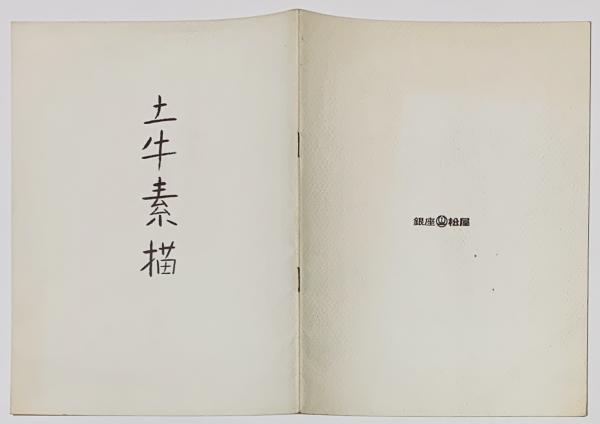 土牛素描
銀座松屋